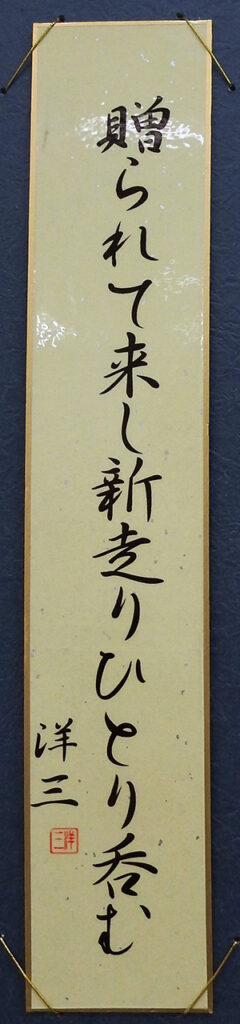 贈られて来し新走りひとり呑む
洋三
洋三